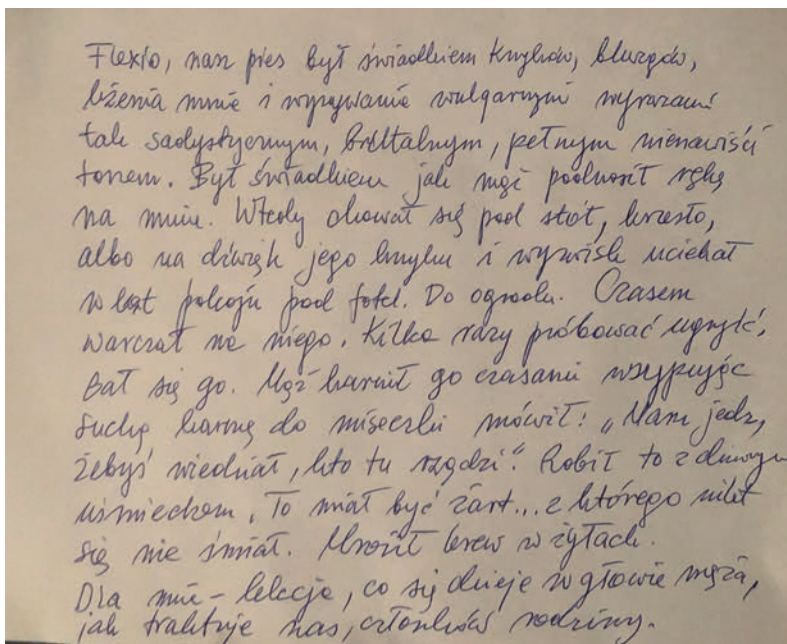 Flexio, nasz pies był świadkiem krzyków, bluzgów,
lżenia mnie i wyzywania wulgarnymi wyrazami
tak sadystycznym, brutalnym, pełnym nienawiści
tonem. Był świadkiem jak mąż podnosił rękę
na mnie. Wtedy chował się pod stół, krzesło,
albo na dźwięk jego krzyku i wyzwisk uciekał
w kąt pokoju pod fotel. Do ogrodu. Czasem
warczał na niego. Kilka razy próbował ugryźć.
Bał się go. Mąż karmił go czasami wsypując
suchą karmę do miseczki mówił: „Masz jedz,
żebyś wiedział, kto tu rządzi". Robił to z dziwnym
uśmiechem. To miał być żart... z którego nikt
się nie śmiał. Mroził krew w żyłach.
Dla mnie - lekcja, co się dzieje w głowie męża,
jak traktuje nas, członków rodziny.